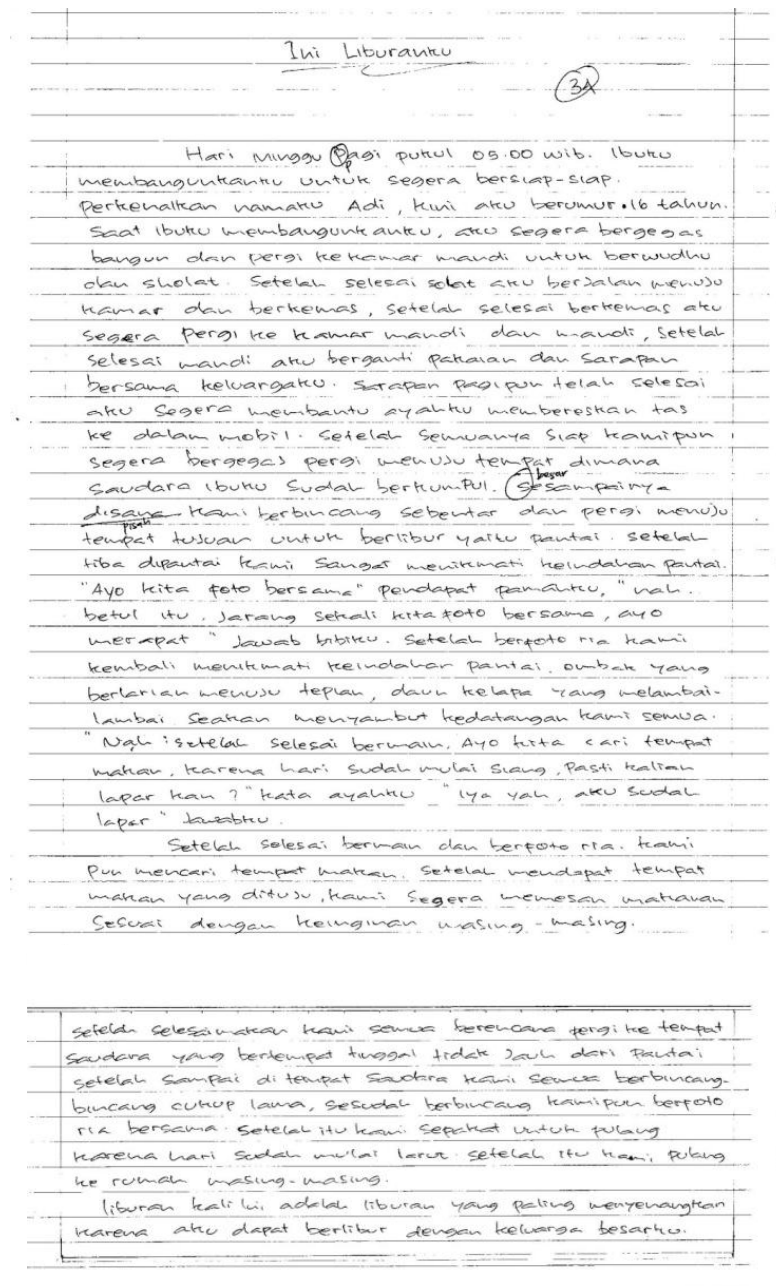 Ini Liburanku
34
Hari Minggu Pagi pukul 05.00 wib. Ibuku
membangunkanku untuk segera bersiap-siap.
Perkenalkan namaku Adi, kini aku berumur 16 tahun.
Saat ibuku membangunkanku, aku segera bergegas
bangun dan pergi ke kamar mandi untuk berwudhu
dan sholat. Setelah selesai solat aku berjalan menuju
kamar dan berkemas, setelah selesai berkemas aku
segera pergi ke kamar mandi dan mandi, setelah
selesai mandi aku berganti pakaian dan sarapan
bersama keluargaku. Sarapan pagipun telah selesai
aku segera membantu ayahku membereskan tas
ke dalam mobil. Setelah semuanya siap kamipun
segera bergegas pergi menuju tempat dimana
besar
saudara ibuku sudah berkumpul. Sesampainya
disana kami berbincang sebentar dan pergi menuju
pisah
tempat tujuan untuk berlibur yaitu pantai. Setelah
tiba dipantai kami sangat menikmati keindahan pantai.
"Ayo kita foto bersama" pendapat pamanku, "nah.
betul itu. Jarang sekali kita foto bersama, ayo
merapat" Jawab bibiku. Setelah berfoto ria kami
kembali menikmati keindahan pantai. ombak yang
berlarian menuju tepian, daun kelapa yang melambai-
lambai seakan menyambut kedatangan kami semua.
"Nah : setelah selesai bermain, Ayo kita cari tempat
makan, karena hari sudah mulai siang, Pasti kalian
lapar kan ?" kata ayahku "Iya yah, aku sudah
lapar" Jawabku.
Setelah selesai bermain dan berfoto ria. kami
Pun mencari tempat makan. Setelah mendapat tempat
makan yang dituju, kami segera memesan makanan
Sesuai dengan keinginan masing-masing.
setelah selesai makan kami semua berencana pergi ke tempat
saudara yang bertempat tinggal tidak jauh dari Pantai
setelah sampai di tempat saudara kami semua berbincang-
bincang cukup lama, sesudah berbincang kamipun berfoto
ria bersama. Setelah itu kami sepakat untuk pulang
karena hari sudah mulai larut. setelah itu kami pulang
ke rumah masing-masing.
liburan kali ini, adalah liburan yang paling menyenangkan
karena aku dapat berlibur dengan keluarga besarku.